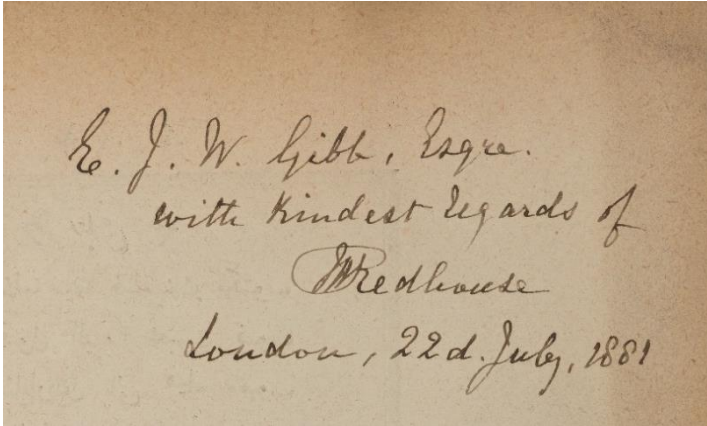 E. J. W. Gibb, Esqre.
with kindest regards of
JWRedhouse
London, 22d. July, 1881